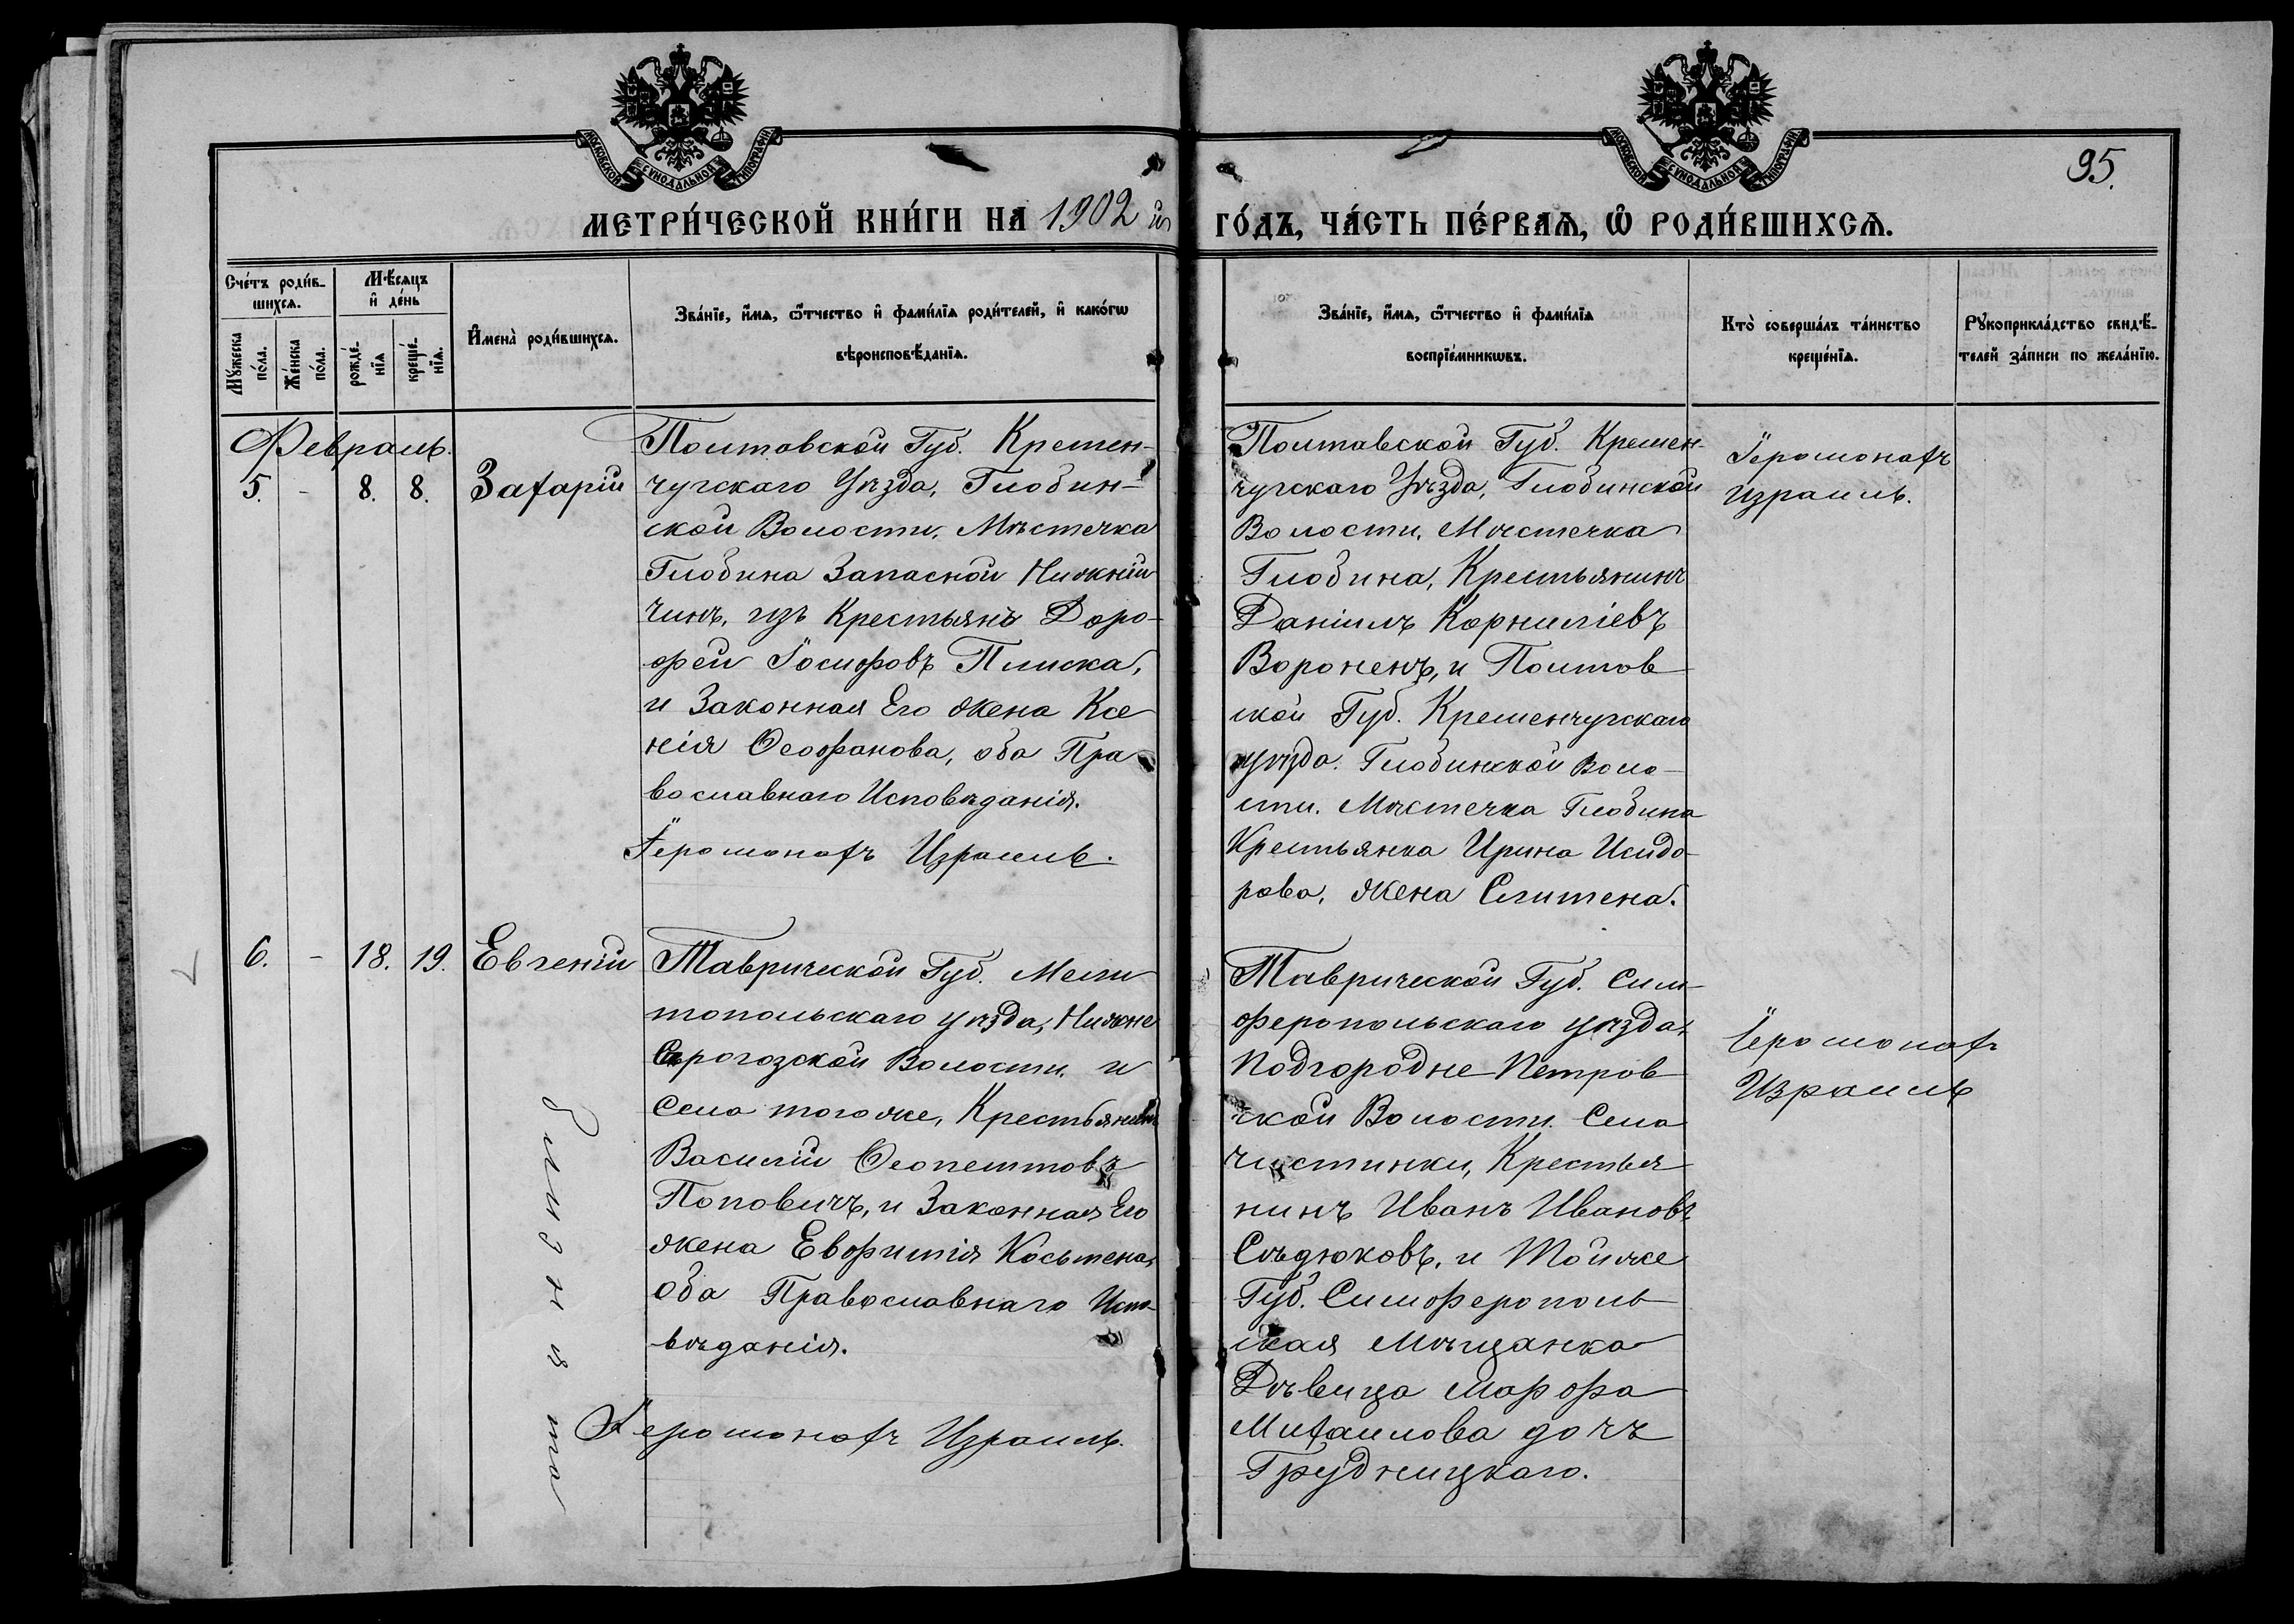 МОСКОВСКОЙ СѴНОДАЛЬНОЙ ТИПОГРАФІИ
МОСКОВСКОЙ СѴНОДАЛЬНОЙ ТИПОГРАФІИ
95.
МЕТРИ́ЧЕСКОЙ КНИ́ГИ НА 1902 й
ГО́ДЪ, ЧА́СТЬ ПЕ́РВАѦ, Ѽ РОДИ́ВШИХСѦ.
Сче́тъ роди́в-
шихсѧ.
Мꙋ́жеска по́ла.
Же́нска по́ла.
Мѣ́сяцъ
и҆ де́нь
рожде́-
нїѧ
креще́-
нїѧ.
И҆мена̀ роди́вшихсѧ.
Зва́нїе, и҆́мѧ, ѻ҆́тчество и҆ фами́лїѧ роди́телей, и҆ како́гѡ
вѣроисповѣ́данїѧ.
Зва́нїе, и҆́мѧ, ѻ҆́тчество и҆ фами́лїѧ
воспрїе́мникѡвъ.
Кто̀ соверша́лъ та́инство
креще́нїѧ.
Рꙋкоприкла́дство свидѣ́-
телей за́писи по жела́нїю.
Февраль.
5. - 8. 8. Захарій
Полтавской Губ. Кремен-
чугскаго Уѣзда, Глобин-
ской Волости, Мѣстечка
Глобина Запасной Нижній
Чинъ, изъ Крестьянъ Доро-
фей Іосифовъ Плиска,
и Законная Его жена Ксе
нія Ѳеофанова, оба Пра
вославнаго Исповѣданія.
Іеромонахъ Израиль.
Полтавской Губ. Кремен-
чугскаго Уѣзда, Глобинской
Волости, Мѣстечка
Глобина, Крестьянинъ
Даніилъ Корниліевъ
Вороненъ, и Полтов
ской Губ. Кременчугскаго
уѣзда. Глобинской Воло-
сти. Мѣстечка Глобина
Крестьянка Ирина Исидо-
рова, жена Слитена.
Іеромонахъ
Израиль.
6. - 18. 19. Евгеній
Близнята
Таврической Губ. Мели
топольскаго уѣзда, Нижне
Сѣрогозской Волости и
Села того же, Крестьянинъ
Василій Ѳеопемтовъ
Поповичъ, и Законная Его
жена Евфимія Косьмена,
Оба Православнаго Испо-
вѣданія.
Іеромонахъ Израиль.
Таврической Губ. Сим-
феропольскаго уѣзда,
Подгородне Петров
ской Волости. Села
Чистинки, Крестья
нинъ Иванъ Ивановъ
Сѣдюковъ, и Той же
Губ. Симферополь
ская Мѣщанка
Дѣвица Марфа
Михаилова дочь
Грудницкаго.
Іеромонахъ
Израиль